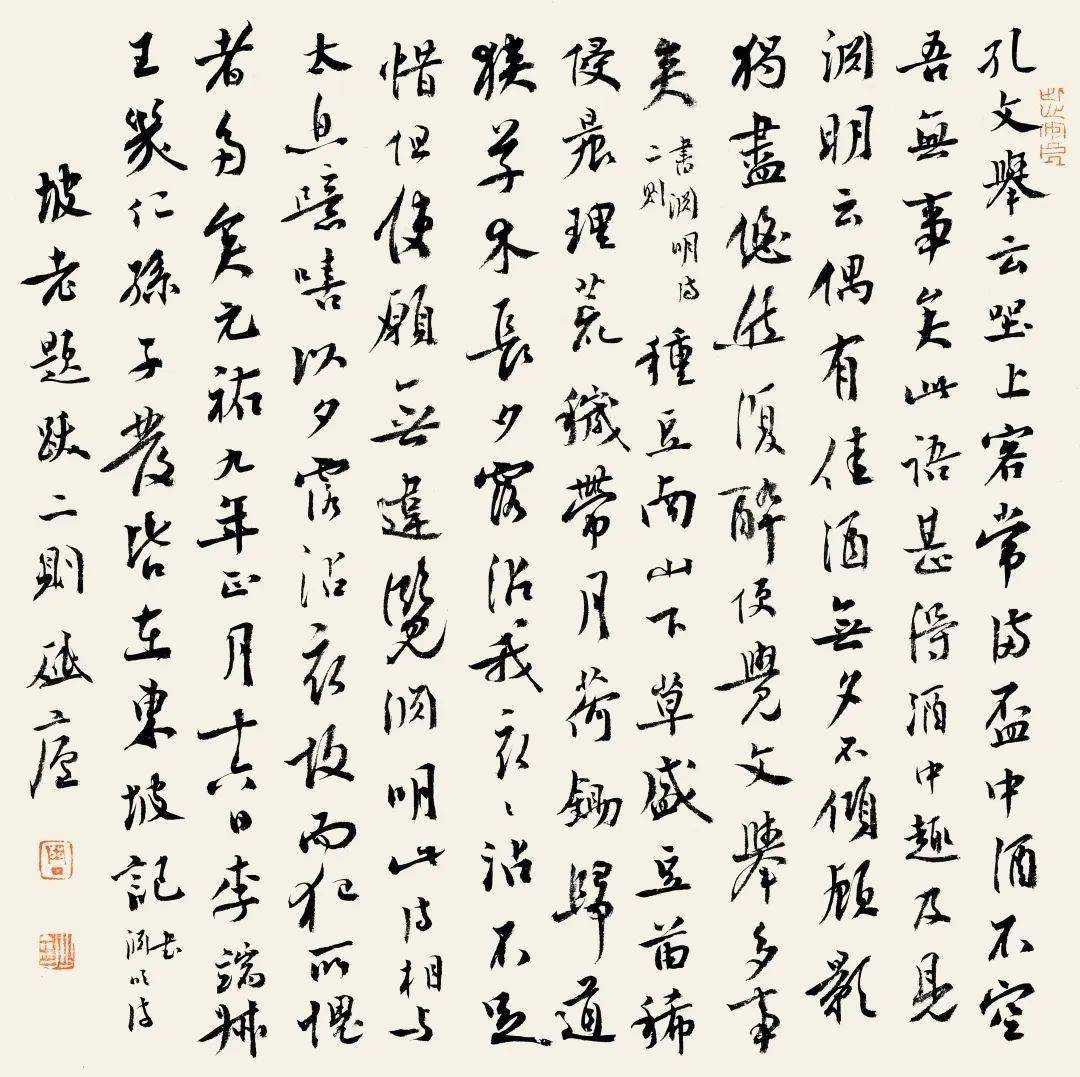 孔文舉云坐上客常滿盃中酒不空
吾無事矣此語甚得酒中趣及見
淵明云偶有佳酒無夕不傾顧影
獨盡悠然復醉便覺文舉多事
矣
書淵明詩
二則
種豆南山下草盛豆苗稀
侵晨理荒穢帶月荷鋤歸道
狹草木長夕露沾我衣〻沾不足
惜但使願無違覽淵明此詩相与
太息噫嘻以夕露沾衣故而犯所愧
者多矣元祐九年正月十六日李端叔
王幾仁孫子發皆在東坡記
書
淵明詩
坡老題跋二則 廬